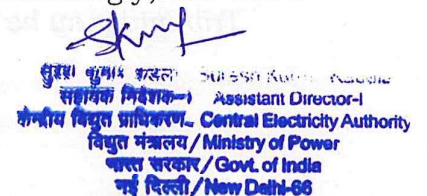 कुमार
सहायक निदेशक-I Assistant Director-I
केन्द्रीय विद्युत प्राधिकरण Central Electricity Authority
विद्युत मंत्रालय/Ministry of Power
भारत सरकार/Govt. of India
नई दिल्ली/New Delhi-66